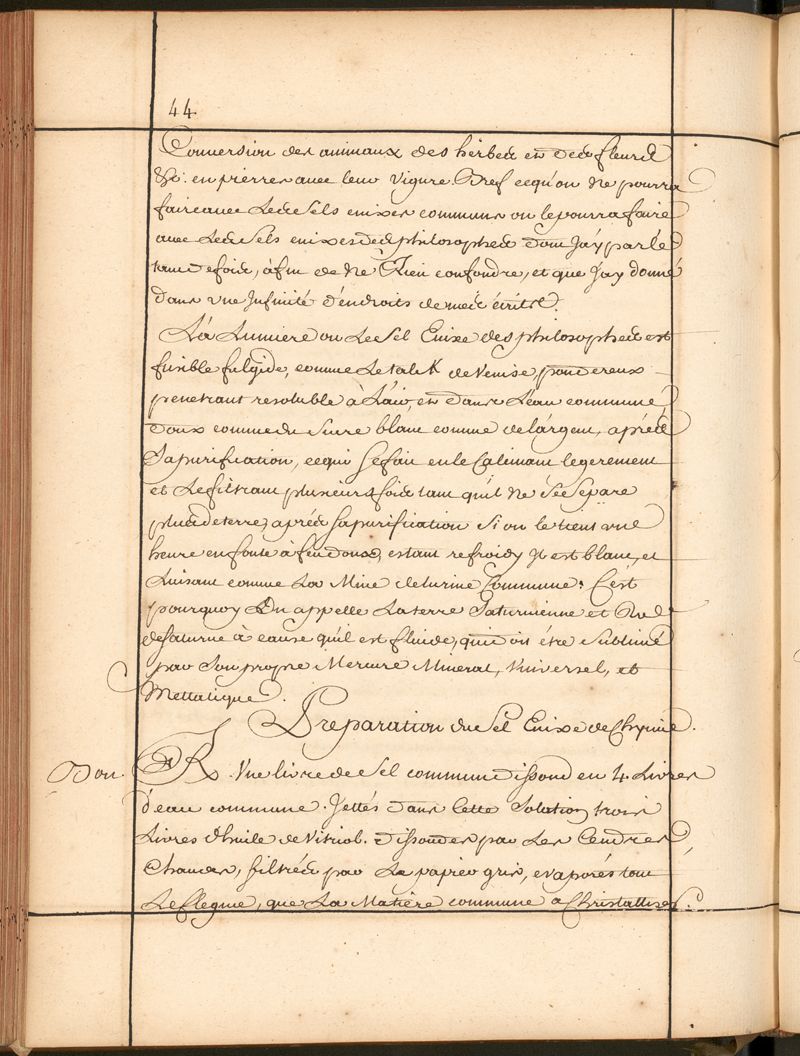 44
Conversion des animaux des herbes et des fleurs
&c. en pierres avec leur vigure. Bref cequ'on ne pourra
faire avec Les Sels enixes communs on le pourra faire
avec Les Sels enixes des philosophes dont J'ay parlé
tant de fois, àfin de ne Rien confondre, et que J'ay donné
dans vne Infinité d'endroits de mes écrits.
La Lumiere ou Le Sel Enixe des philosophes est
fusible fulgide, comme Le talek de Venise, pondereux
penetrant resoluble à L'air, et dans L'eau commune
doux comme du sucre blanc comme de l'argent, aprés
Sa purification, ce qui se fait en le Calcinant legerement
et Le filtrant plusieurs fois tant qu'il ne Se Separe
plus de terre, aprés sa purification Si on le tient vne
heure en fonte à feu doux, estant refroidy Il est blanc, et
Luisant comme La Mine de Commune. C'est
pourquoy On appelle La terre Saturnienne et Sel
de Saturne à cause qu'il est fluide, qui doit être Sublimé
par Son propre Mercure Mineral, Vniversel, et
Mettalique.
Preparation du Sel Enixe de Chymie.
Bon. R. Vne livre de Sel commun dissoud en 4 Livres
d'eau commune. Jettés dans Cette Solution trois
Livres d'huile de Vitriol. par Les Cendres
Chaudes, filtrés par Le papier gris, evaporés tout
Le flegme, que La Matière commune à Christalliser.